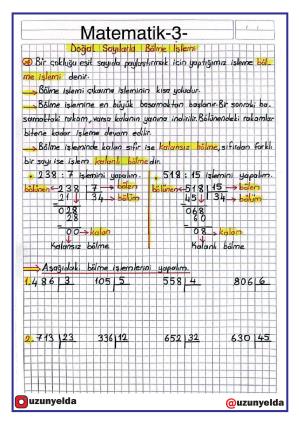 Matematik-3-
Doğal Sayılarla Bölme İşlemi
Bir çokluğu eşit sayıda paylaştırmak için yaptığımız işleme böl-
me işlemi denir.
Bölme işlemi çıkarma işleminin kısa yoludur.
Bölme işlemine en büyük basamaktan başlanır. Bir sonraki ba-
samaktaki rakam, varsa kalanın yanına indirilir. Bölünendeki rakamlar
bitene kadar işleme devam edilir.
Bölme işleminde kalan sıfır ise kalansız bölme, sıfırdan farklı
bir sayı ise işlem kalanlı bölmedir.
238 : 7 işlemini yapalım.
bölünen 238 7 bölen
21 34 bölüm
028
28
00 kalan
Kalansız bölme
518 : 15 işlemini yapalım.
bölünen 518 15 bölen
45 34 bölüm
068
60
08 kalan
Kalanlı bölme
Aşağıdaki bölme işlemlerini yapalım.
1. 486 3 105 5 558 4 806 6
2. 713 23 336 12 652 32 630 45
uzunyelda @uzunyelda